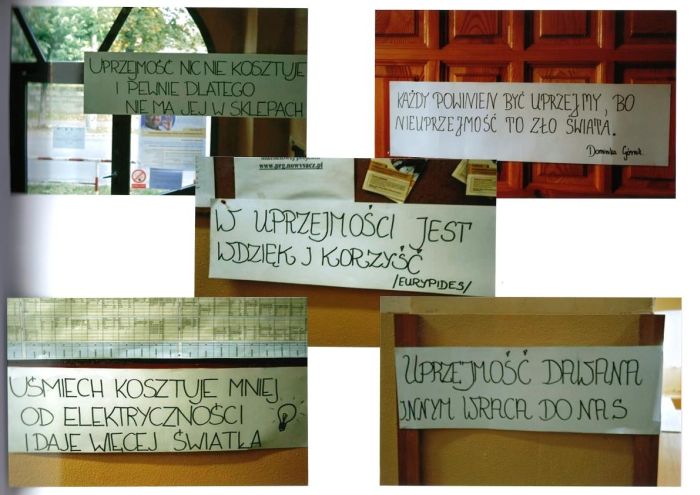 UPRZEJMOŚĆ NIC NIE KOSZTUJE
I PEWNIE DLATEGO
NIE MA JEJ W SKLEPACH
KAŻDY POWINIEN BYĆ UPRZEJMY, BO
NIEUPRZEJMOŚĆ TO ZŁO ŚWIATA.
Dominika
www.prg.nowysacz.pl
W UPRZEJMOŚCI JEST
WDZIĘK I KORZYŚĆ
/EURYPIDES/
UŚMIECH KOSZTUJE MNIEJ
OD ELEKTRYCZNOŚCI
I DAJE WIĘCEJ ŚWIATŁA
UPRZEJMOŚĆ DAWANA
INNYM WRACA DO NAS